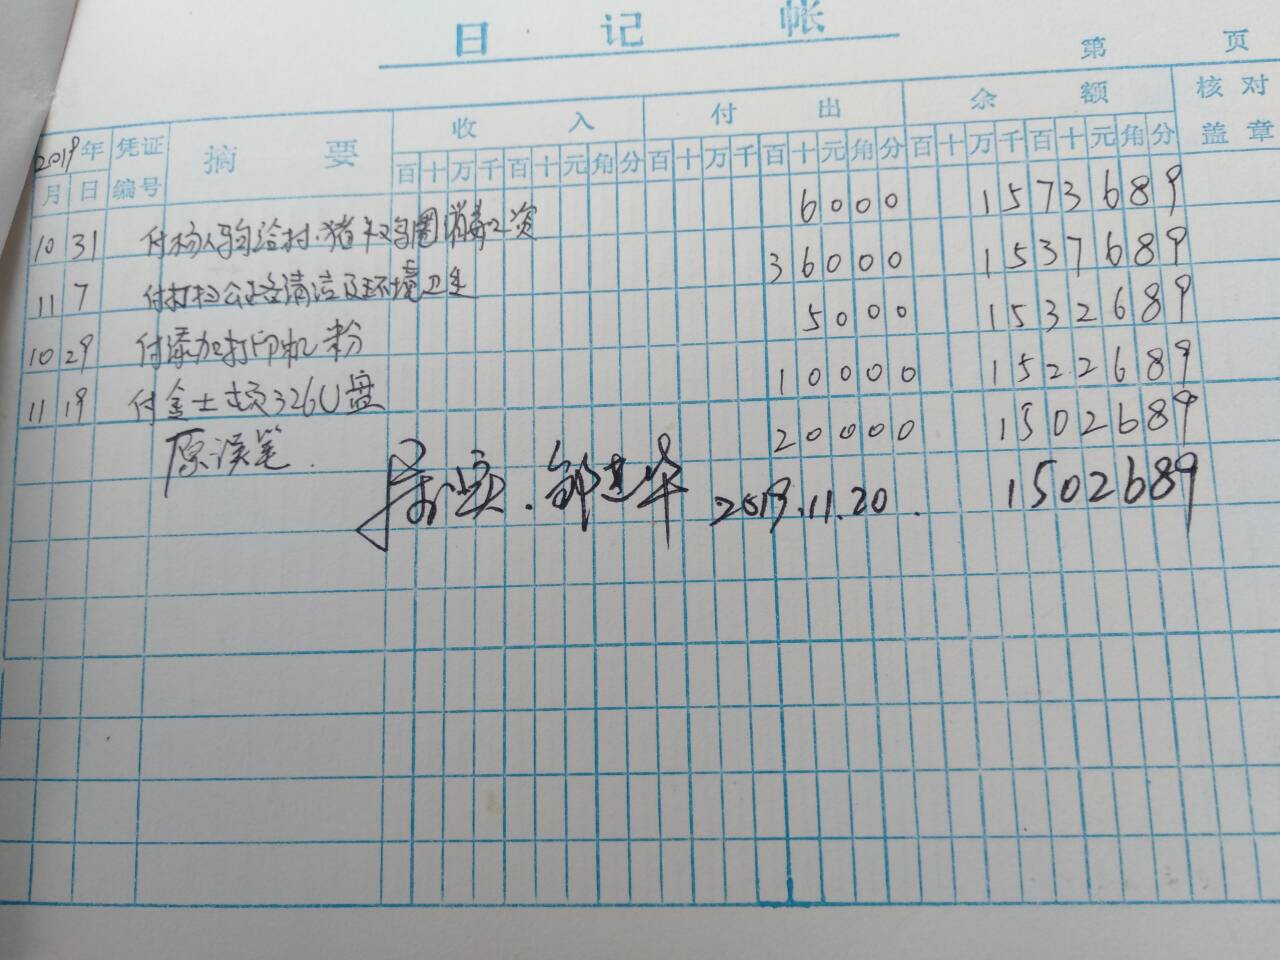 日 记 帐
第 页
2019年 凭证 摘 要 收 入 付 出 余 额 核 对
月 日 编号 百 十 万 千 百 十 元 角 分 百 十 万 千 百 十 元 角 分 百 十 万 千 百 十 元 角 分 盖 章
10 31 付 给村 猪 圈消毒 6000 1573689
11 7 付打扫公路清洁及环境卫生 36000 1537689
10 29 付添加打印机粉 5000 1532689
11 19 付金士顿326U盘 10000 1522689
20000 1502689
2019.11.20. 1502689